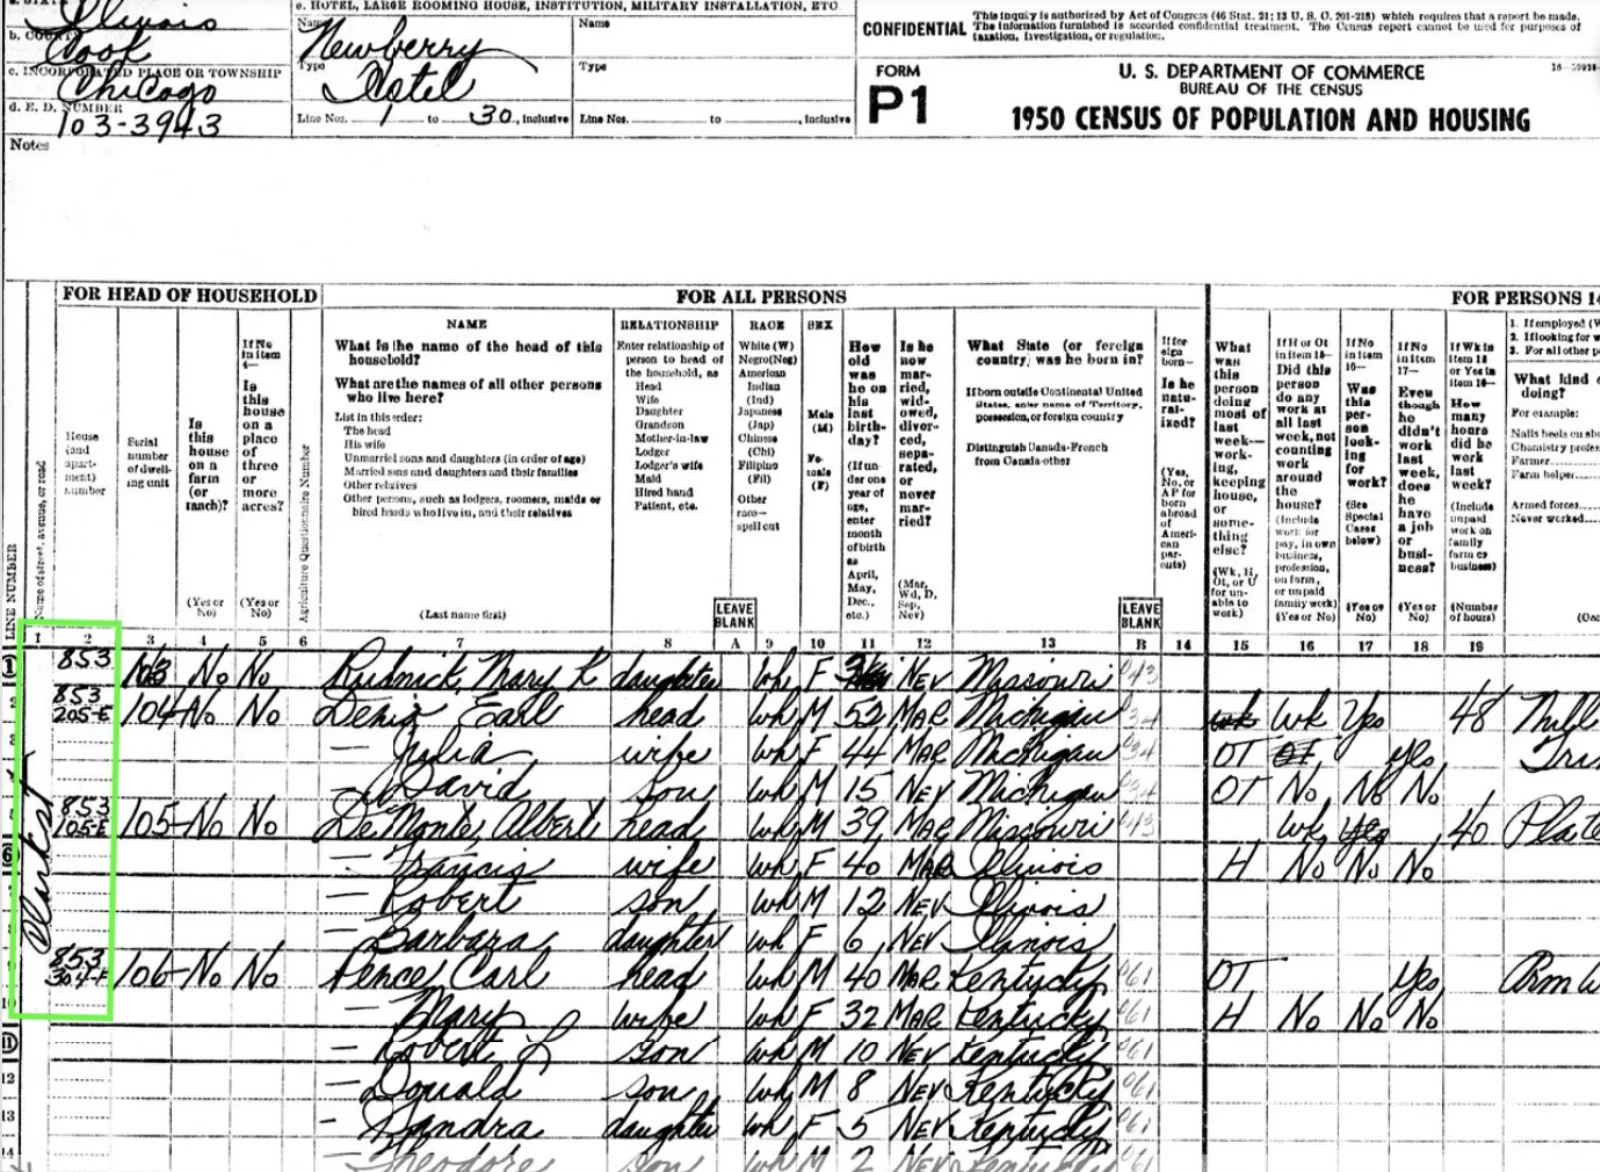 a. STATE Illinois
b. COUNTY Cook
c. INCORPORATED PLACE OR TOWNSHIP
Chicago
d. E. D. NUMBER
103-3943
e. HOTEL, LARGE ROOMING HOUSE, INSTITUTION, MILITARY INSTALLATION, ETC
Name Newberry
Type Hotel
Line Nos. 1 to 30, inclusive
Name
Type
Line Nos. to , inclusive
CONFIDENTIAL
This inquiry is authorized by Act of Congress (46 Stat. 21; 13 U. S. C. 201-218) which requires that a report be made.
The information furnished is accorded confidential treatment. The Census report cannot be used for purposes of
taxation, investigation, or regulation.
FORM
P1
U. S. DEPARTMENT OF COMMERCE
BUREAU OF THE CENSUS
1950 CENSUS OF POPULATION AND HOUSING
Notes
FOR HEAD OF HOUSEHOLD
FOR ALL PERSONS
FOR PERSONS 14
LINE NUMBER
Name of street, avenue, or road
House (and apartment) number
Serial number of dwelling unit
Is this house on a farm (or ranch)?
(Yes or No)
If No in item 4—
Is this house on a place of three or more acres?
(Yes or No)
Agriculture Questionnaire Number
NAME
What is the name of the head of this household?
What are the names of all other persons who live here?
List in this order:
The head
His wife
Unmarried sons and daughters (in order of age)
Married sons and daughters and their families
Other relatives
Other persons, such as lodgers, roomers, maids or hired hands who live in, and their relatives
(Last name first)
RELATIONSHIP
Enter relationship of person to head of the household, as
Head
Wife
Daughter
Grandson
Mother-in-law
Lodger
Lodger's wife
Maid
Hired hand
Patient, etc.
LEAVE BLANK
RACE
White (W)
Negro(Neg)
American Indian (Ind)
Japanese (Jap)
Chinese (Chi)
Filipino (Fil)
Other race— spell out
SEX
Male (M)
Female (F)
How old was he on his last birthday?
(If under one year of age, enter month of birth as April, May, Dec., etc.)
Is he now married, widowed, divorced, separated, or never married?
(Mar, Wd, D, Sep, Nev)
What State (or foreign country) was he born in?
If born outside Continental United States, enter name of Territory, possession, or foreign country
Distinguish Canada-French from Canada-other
LEAVE BLANK
If foreign born—
Is he naturalized?
(Yes, No, or AP for born abroad of American parents)
What was this person doing most of last week— working, keeping house, or something else?
(Wk, H, Ot, or U for unable to work)
If H or Ot in item 15—
Did this person do any work at all last week, not counting work around the house?
(Include work for pay, in own business, profession, on farm, or unpaid family work)
(Yes or No)
If No in item 16—
Was this person looking for work?
(See Special Cases below)
(Yes or No)
If No in item 17—
Even though he didn't work last week, does he have a job or business?
(Yes or No)
If Wk in item 15 or Yes in item 16—
How many hours did he work last week?
(Include unpaid work on family farm or business)
(Number of hours)
1. If employed (W
2. If looking for w
3. For all other p
What kind
doing?
For example:
Nails heels on sho
Chemistry profes
Farmer
Farm helper
Armed forces
Never worked
(Occ
1 2 3 4 5 6 7 8 A 9 10 11 12 13 B 14 15 16 17 18 19
Clark st
1 853 103 No No Rudnick, Mary K daughter Wh F Nev Missouri 043
2 853 205-E 104 No No Denis Earl head Wh M 52 Mar Michigan 034 Wk Wk Yes 48
3 — Julia wife Wh F 44 Mar Michigan 034 OT OT yes
4 — David son Wh M 15 Nev Michigan 034 OT No No No
5 853 105-E 105 No No De Monte, Albert head Wh M 39 Mar Missouri 043 Wk Yes 40 Plate
6 — Francis wife Wh F 40 Mar Illinois H No No No
7 — Robert son Wh M 12 Nev Illinois
8 — Barbara daughter Wh F 6 Nev Illinois
9 853 304-E 106 No No Pence, Carl head Wh M 40 Mar Kentucky 061 OT Yes Arm
10 — Mary wife Wh F 32 Mar Kentucky 061 H No No No
11 — Robert L son Wh M 10 Nev Kentucky 061
12 — Donald son Wh M 8 Nev Kentucky 061
13 — Sandra daughter Wh F 5 Nev Kentucky 061
14 — Theodore son Wh M 2 Nev Kentucky 061